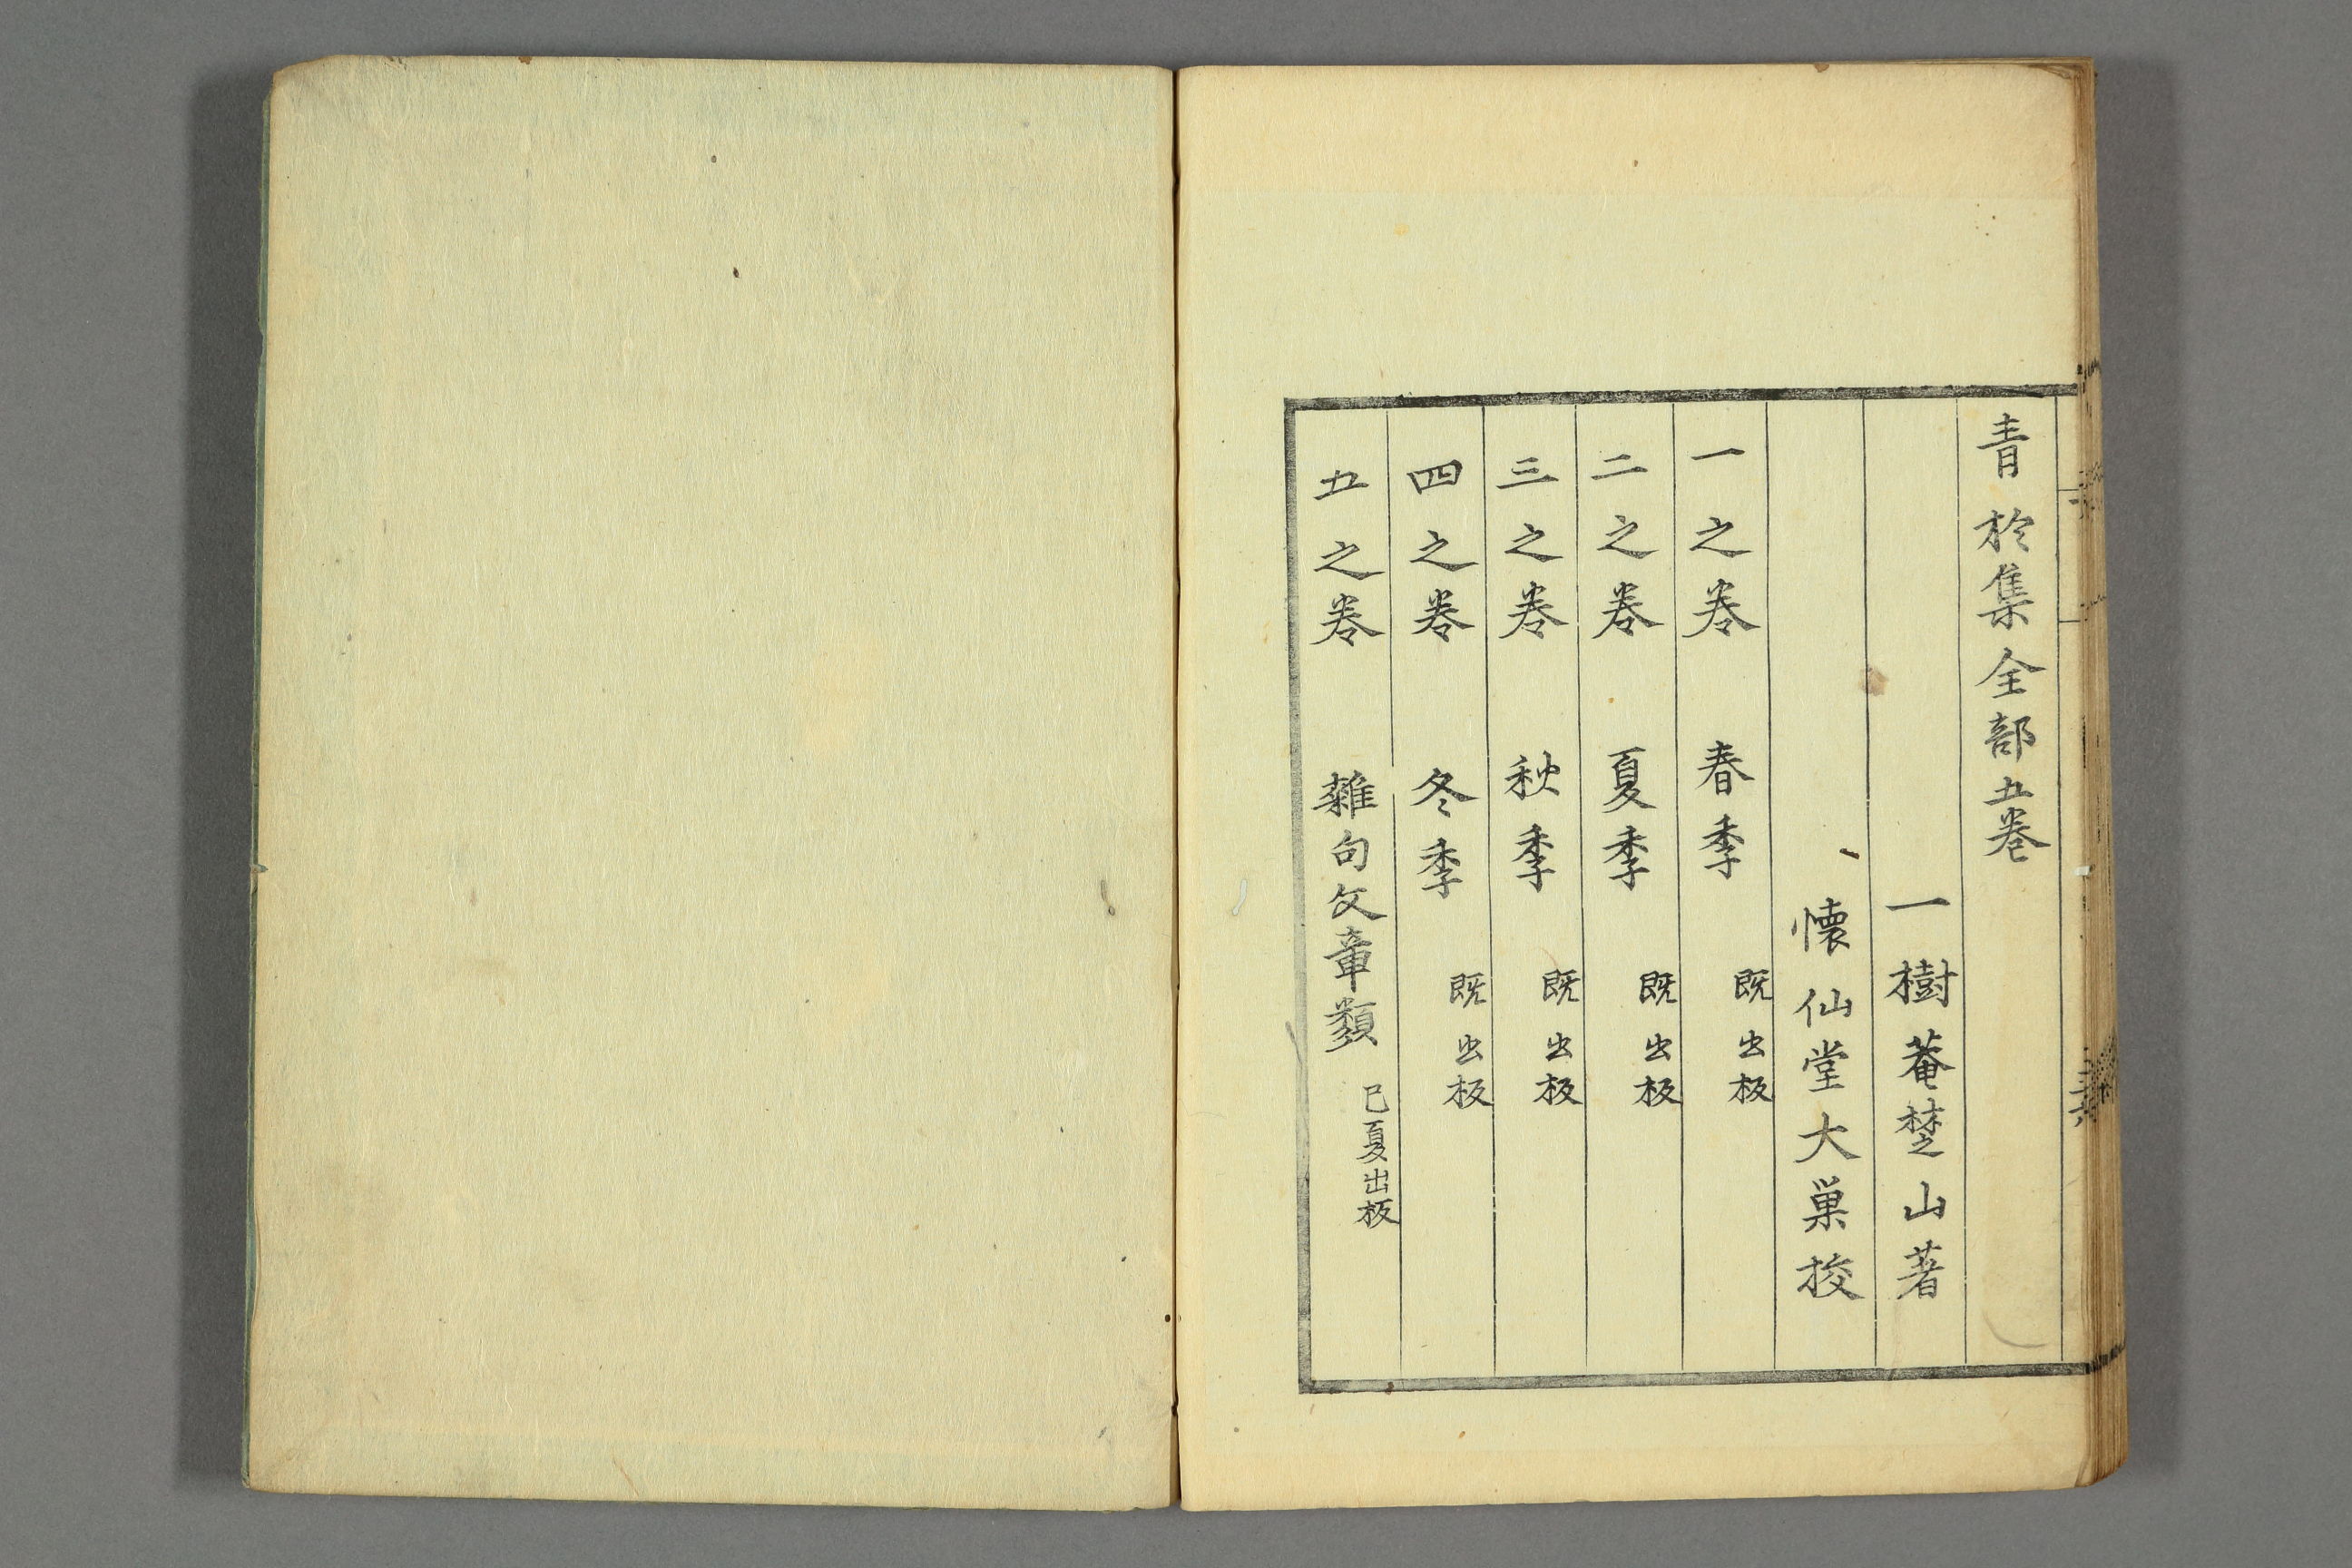 青於集全部五巻
一樹菴埜山著
懐仙堂大巣挍
一之巻 春季 既出板
二之巻 夏季 既出板
三之巻 秋季 既出板
四之巻 冬季 既出板
五之巻 雜句文章類 巳夏出板